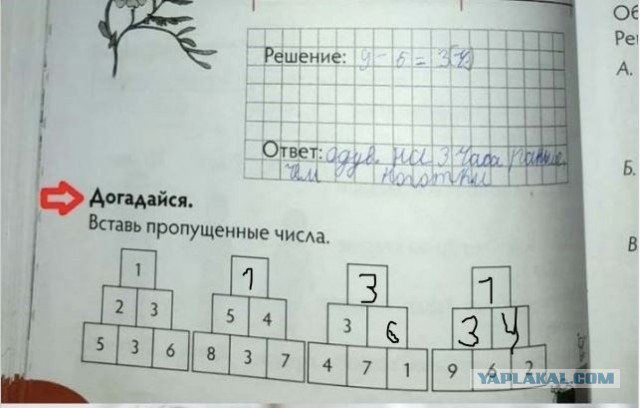 Об
Ре
Решение: 9 - 6 = 3(ч)
А.
Ответ: одув. на 3 часа раньше
чем ноготки
Б.
Догадайся.
Вставь пропущенные числа.
В
1 1 3 1
2 3 5 4 3 6 3 4
5 3 6 8 3 7 4 7 1 9 6 2
YAPLAKAL.COM